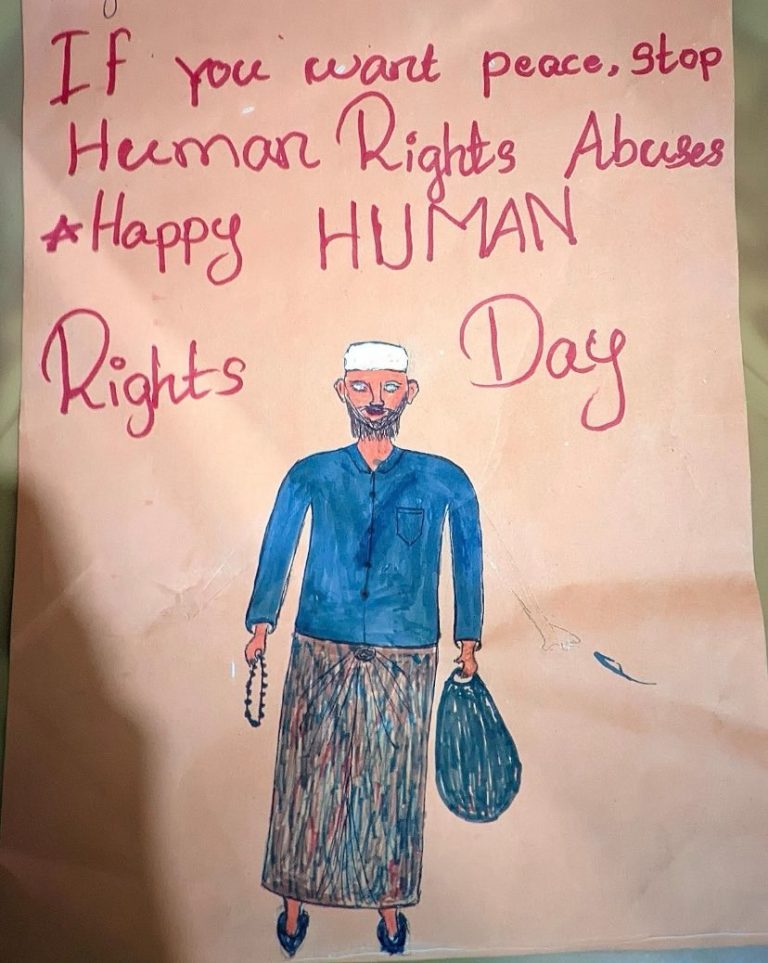 If you want peace, stop
Human Rights Abuses
*Happy HUMAN
Rights Day